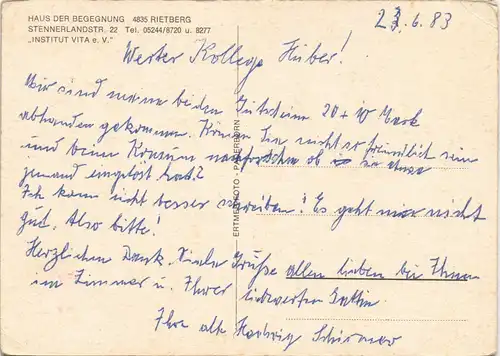 HAUS DER BEGEGNUNG 4835 RIETBERG
STENNERLANDSTR. 22 Tel. 05244/8720 u. 8277
„INSTITUT VITA e. V."
23.6.83
Werter Kollege Huber!
Mir sind meine beiden Gutscheine 20 + 10 Mark
abhanden gekommen. Können Sie nicht so freundlich sein
und beim Konsum nachforschen ob sie etwas
jemand eingelöst hat?
Ich kann nicht besser schreiben! Es geht mir nicht
gut. Also bitte!
Herzlichen Dank. Viele Grüße allen lieben bei Ihnen
im Zimmer u. Ihrer liebwerten Gattin
Ihre alte Hedwig
ERTMER FOTO · PADERBORN